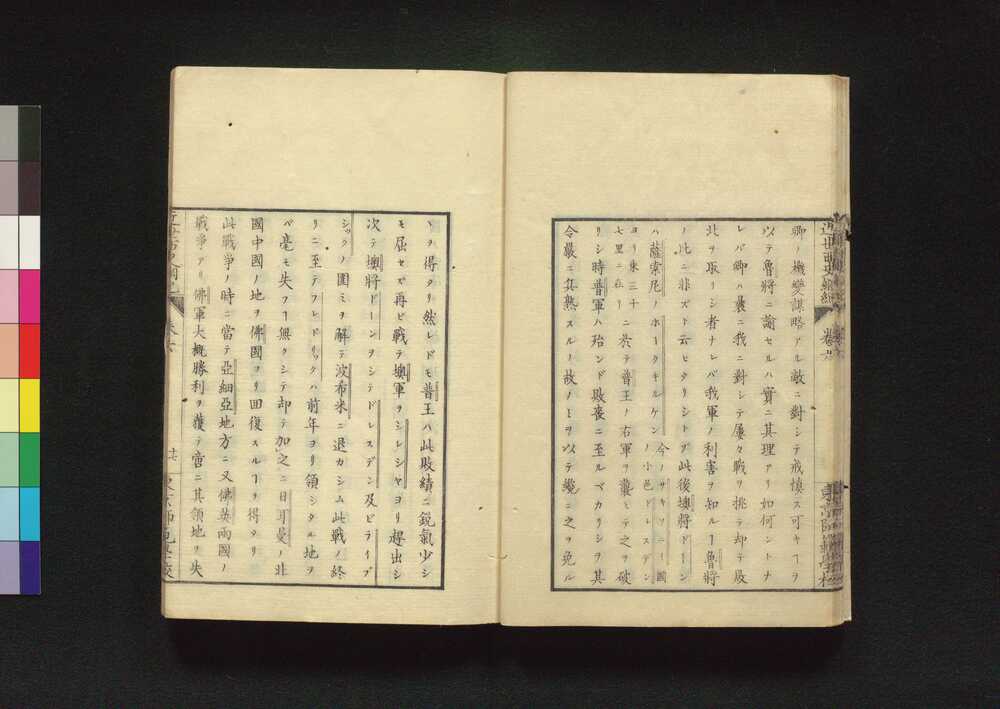 卿ノ機變謀略アル敵ニ對シテ戒慎ス可キヿヲ
以テ魯將ニ諭セルハ實ニ其理アリ如何ントナ
レバ卿ハ曩ニ我ニ對シテ屢々戰ヲ挑テ却テ敗
北ヲ取リシ者ナレバ我軍ノ利害ヲ知ルヿ魯將
ノ此ニ非ズト云ヒタリシトゾ此後墺將ドーン
ハ薩索尼ノホークキルケン
今ノサキソニー國
ノ小邑ドレスデン
ヨリ東三十
七里ニ在リ
ニ於テ普王ノ右軍ヲ襲ヒテ之ヲ破
リシ時普軍ハ殆ンド敗喪ニ至ルマカリシヲ其
令嚴ニ其熟スルノ故ノミヲ以テ纔ニ之ヲ免ル
ヽヲ得タリ然レドモ普王ハ此敗績ニ鋭氣少シ
モ屈セズ再ビ戰テ墺軍ヲシレシヤヨリ趕出シ
次テ墺將ドーンヲシテドレスデン及ビライプ
シックノ圍ミヲ解テ波希米ニ退カシム此戰ノ終
リニ至テフレドリックハ前年ヨリ領シタル地ヲ
バ毫モ失フヿ無クシテ却テ加之ニ日耳曼ノ北
國中國ノ地ヲ佛國ヨリ回復スルヿヲ得タリ
此戰爭ノ時ニ當テ亞細亞地方ニ又佛英兩國ノ
戰爭アリ佛軍大概勝利ヲ獲テ啻ニ其領地ヲ失